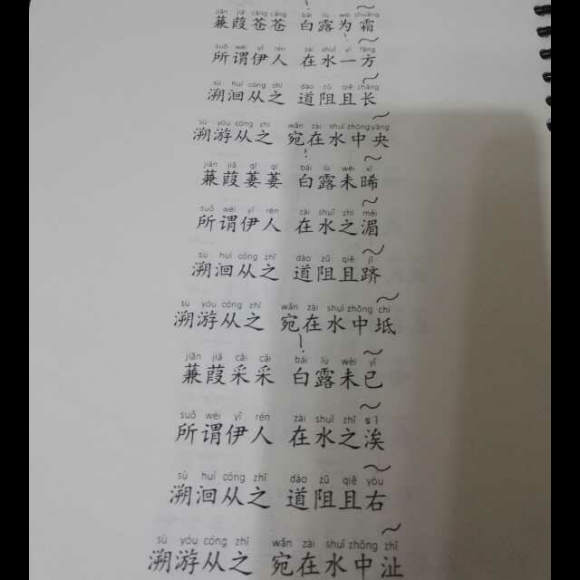 jiān jiā cāng cāng bái lù wéi shuāng
蒹葭苍苍 白露为霜
suǒ wèi yī rén zài shuǐ yì fāng
所谓伊人 在水一方
sù huí cóng zhī dào zǔ qiě cháng
溯洄从之 道阻且长
sù yóu cóng zhī wǎn zài shuǐ zhōng yāng
溯游从之 宛在水中央
jiān jiā qī qī bái lù wèi xī
蒹葭萋萋 白露未晞
suǒ wèi yī rén zài shuǐ zhī méi
所谓伊人 在水之湄
sù huí cóng zhī dào zǔ qiě jī
溯洄从之 道阻且跻
sù yóu cóng zhī wǎn zài shuǐ zhōng chí
溯游从之 宛在水中坻
jiān jiā cǎi cǎi bái lù wèi yǐ
蒹葭采采 白露未已
suǒ wèi yī rén zài shuǐ zhī sì
所谓伊人 在水之涘
sù huí cóng zhī dào zǔ qiě yòu
溯洄从之 道阻且右
sù yóu cóng zhī wǎn zài shuǐ zhōng zhǐ
溯游从之 宛在水中沚